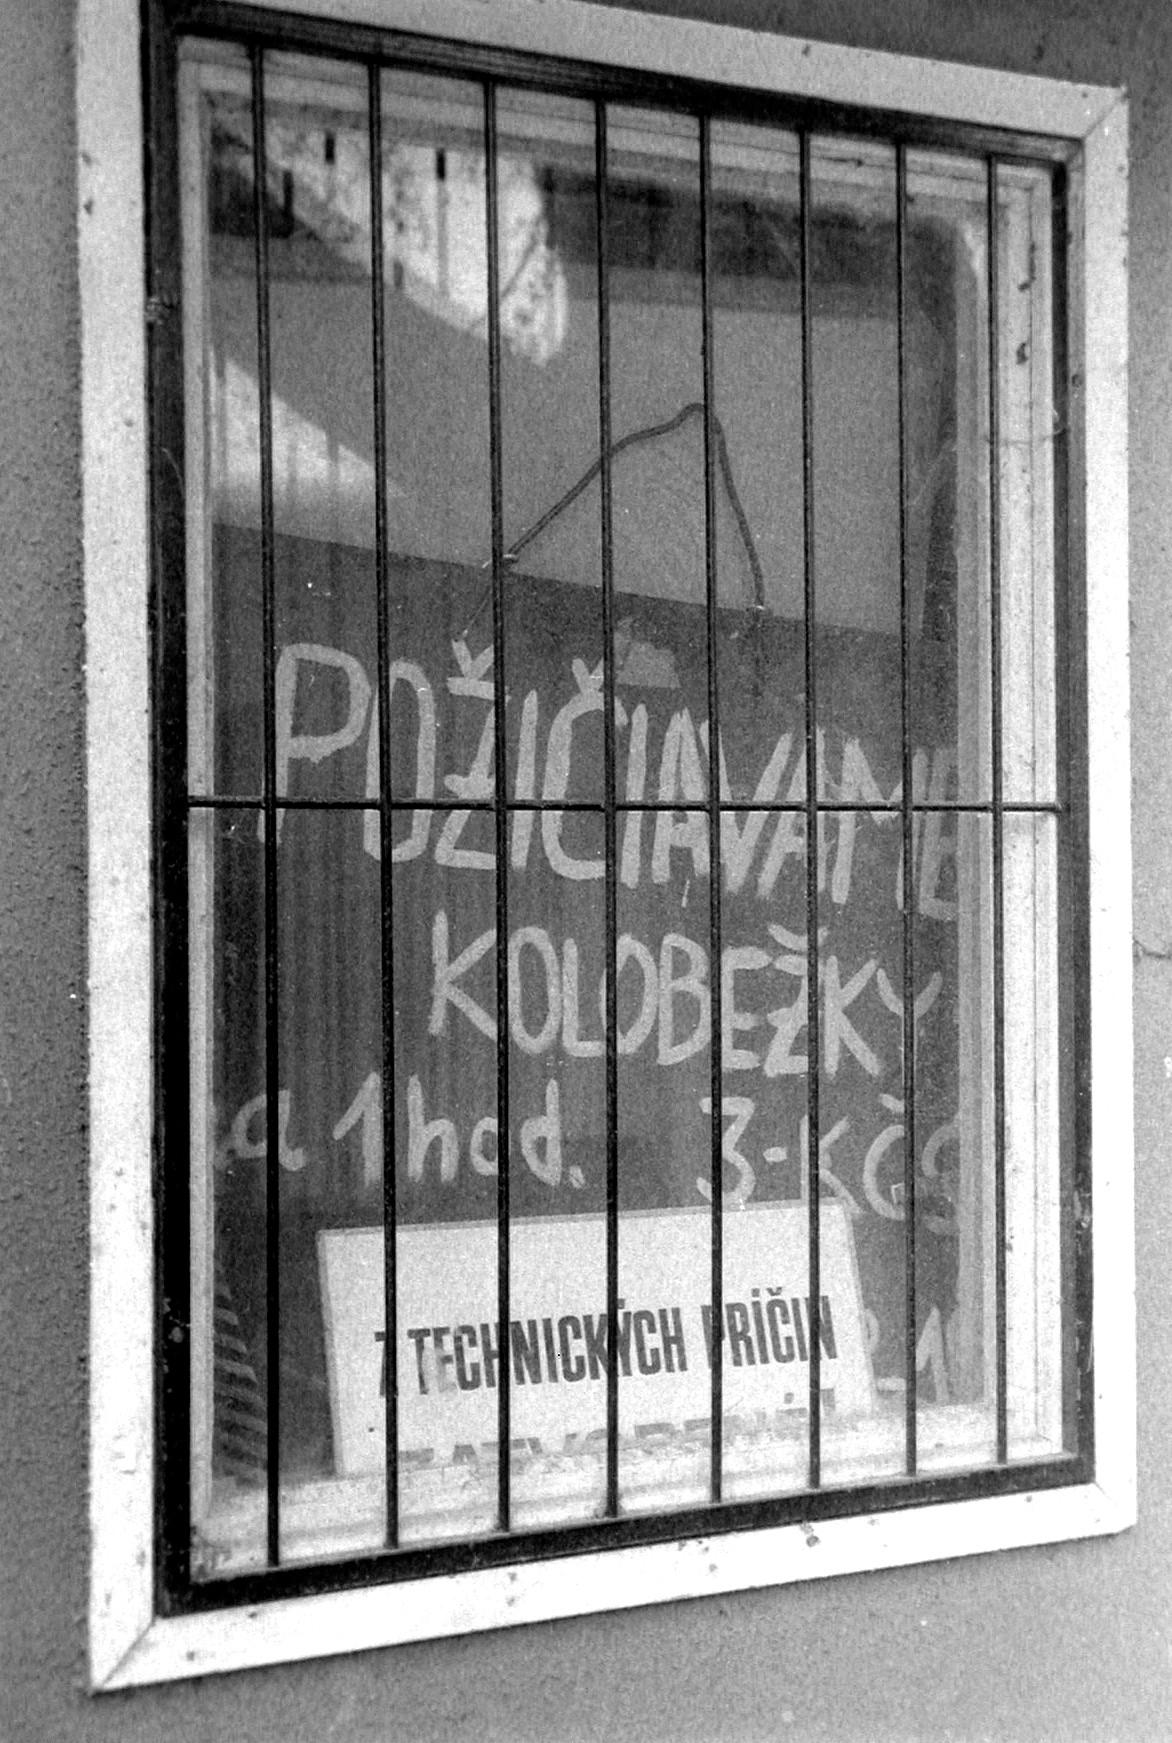 POŽIČIAVAME
KOLOBEŽKY
a 1 hod. 3-KČS
Z TECHNICKÝCH PRÍČIN